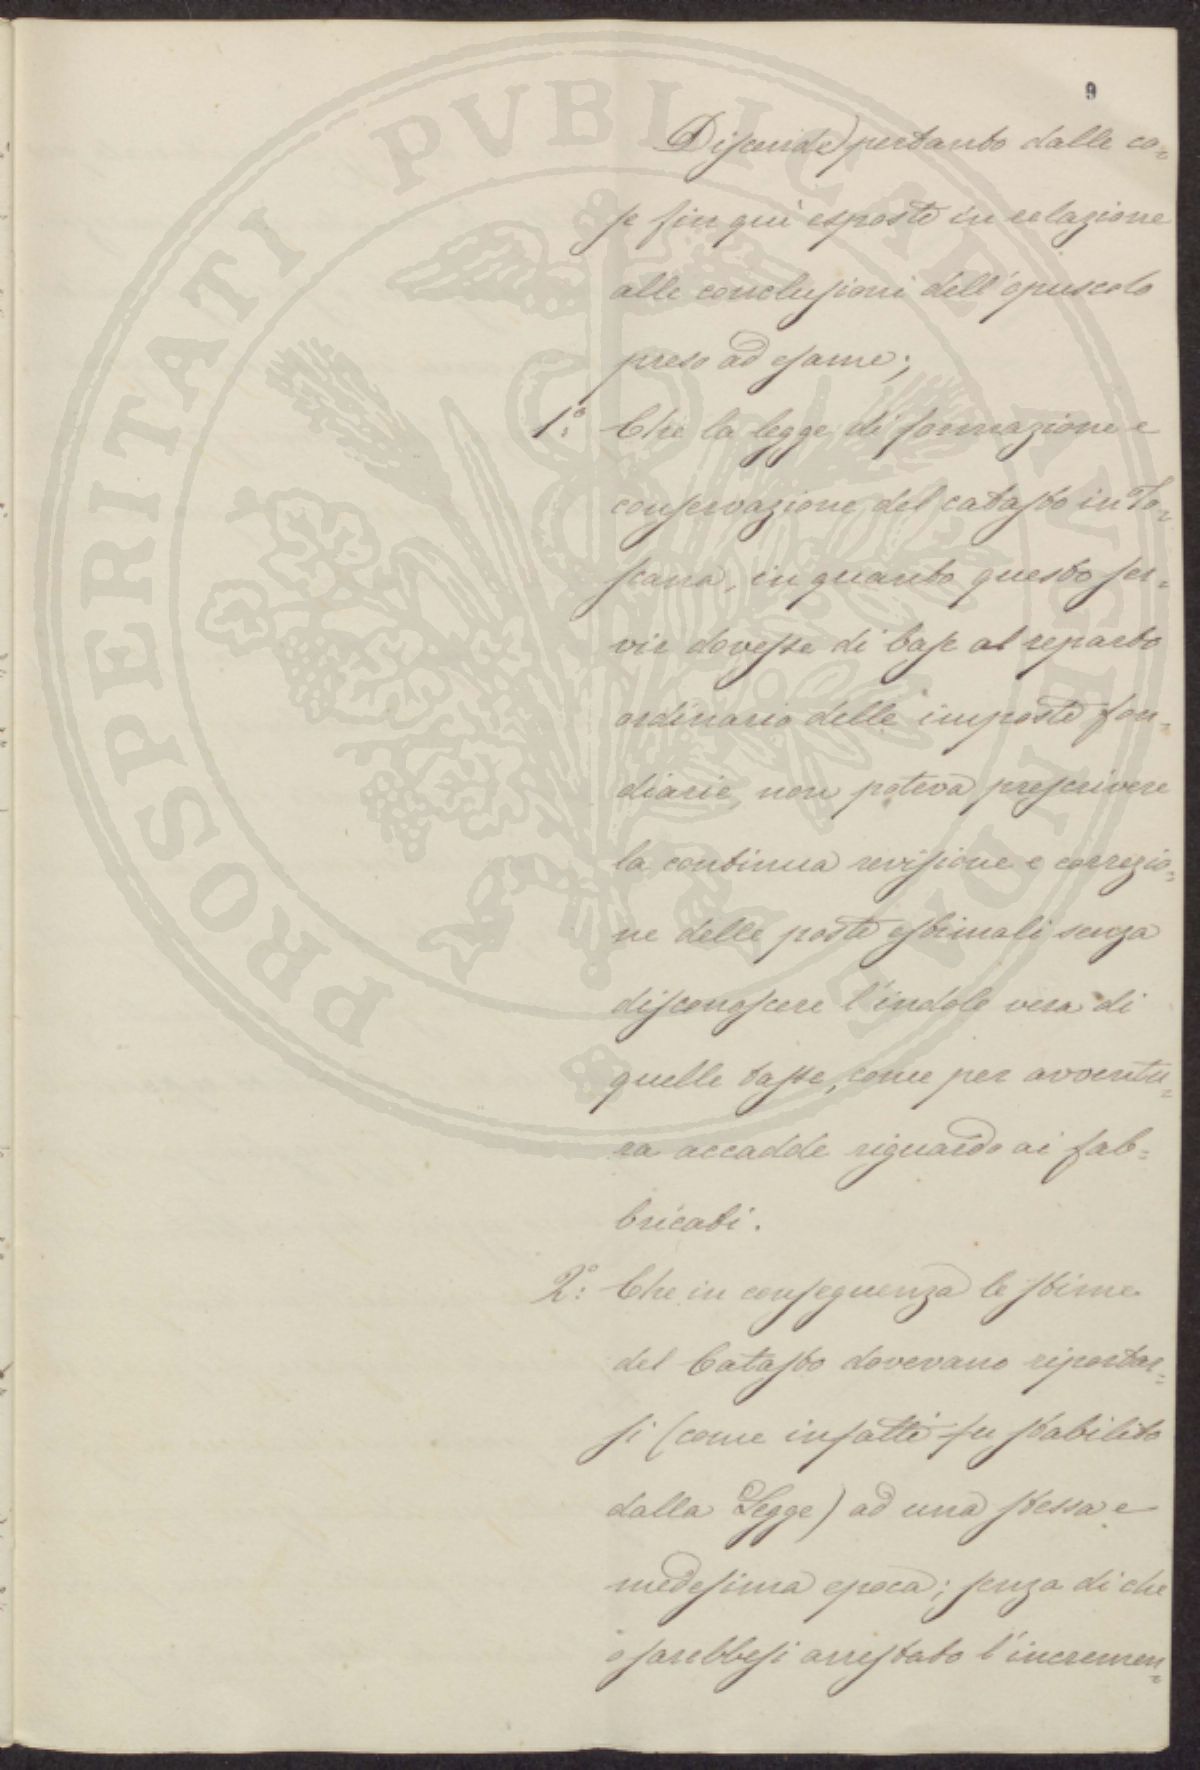 9
Discende pertanto dalle co=
se fin quì esposte in relazione
alle conclusioni dell'opuscolo
preso ad esame;
1.° Che la legge di formazione e
conservazione del catasto in To=
scana, in quanto questo ser=
vir dovesse di base al reparto
ordinario delle imposte fon=
diarie, non poteva prescrivere
la continua revisione e correzio=
ne delle poste estimali senza
disconoscere l'indole vera di
quelle tasse, come per avventu=
ra accadde riguardo ai fab=
bricati.
2.° Che in conseguenza le stime
del Catasto dovevano riportar=
si (come infatti fu stabilito
dalla Legge) ad una stessa e
medesima epoca; senza di che
o sarebbesi arrestato l'incremen=
PROSPERITATI PVBLICAE AVGENDAE